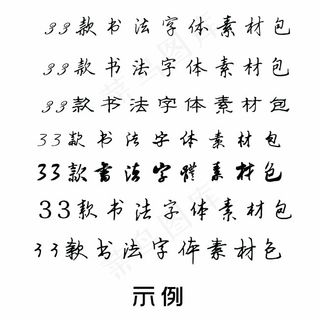 33款书法字体素材包
33款书法字体素材包
33款书法字体素材包
33款书法字体素材包
33款書法字體素材包
33款书法字体素材包
33款书法字体素材包
示例